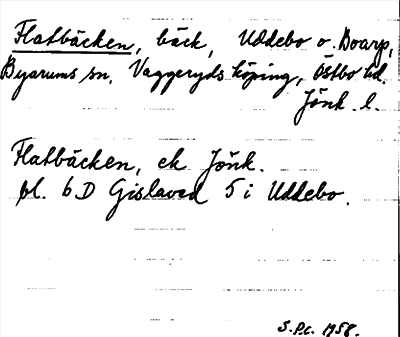 Flatbäcken, bäck, Uddebo o. Boarp,
Byarums sn. Vaggeryds köping, Östbo hd.
Jönk. l.
Flatbäcken, ek Jönk.
bl. 6D Gislaved 5 i Uddebo.
S.P.c. 1958.